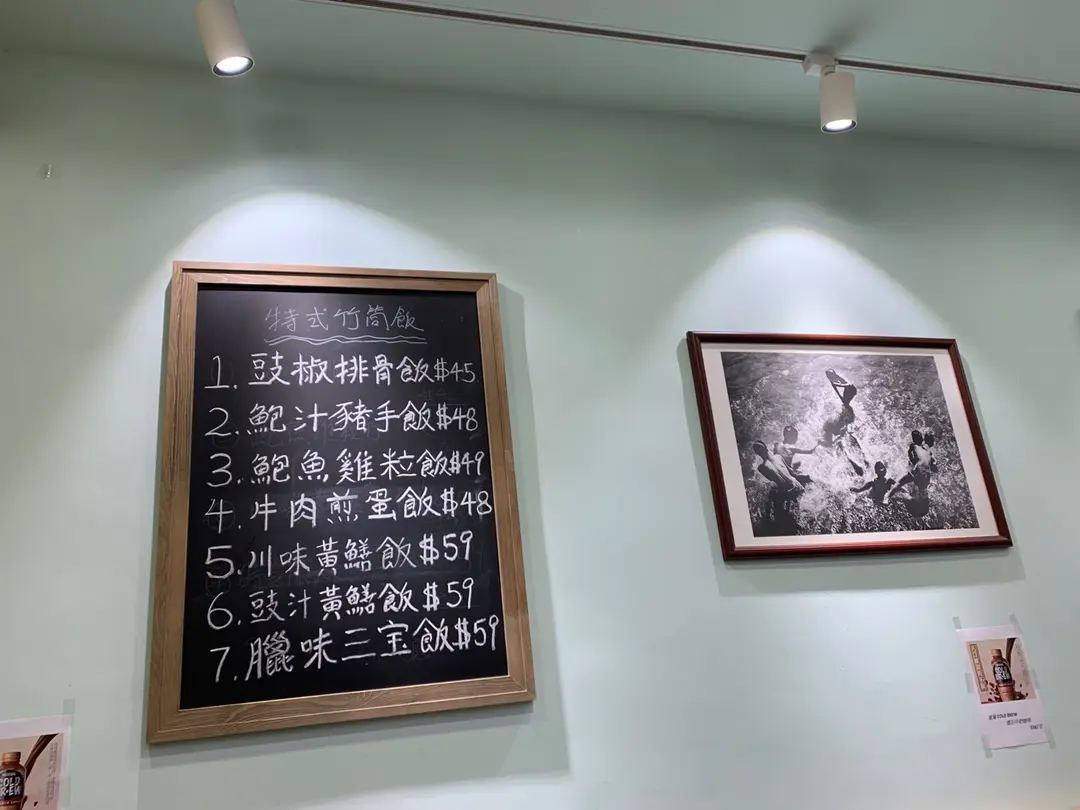 特式竹筒飯
1. 豉椒排骨飯$45
2. 鮑汁豬手飯$48
3. 鮑魚雞粒飯$49
4. 牛肉煎蛋飯$48
5. 川味黃鱔飯$59
6. 豉汁黃鱔飯$59
7. 臘味三宝飯$59
COLD
BREW
COLD
BREW
COLD BREW